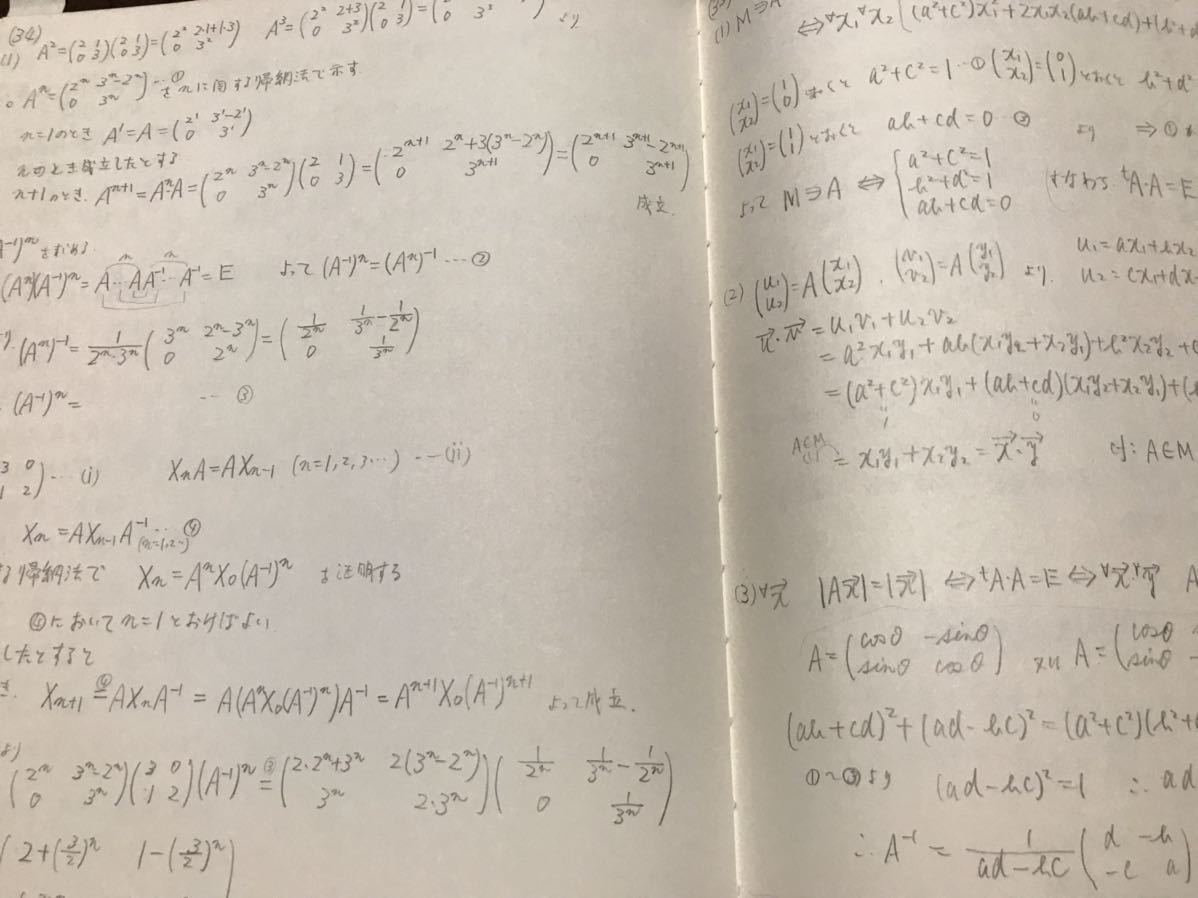 (34)
(1) A²=(2 1 / 0 3)(2 1 / 0 3)=(2² 2·1+1·3 / 0 3²) A³=(2² 2+3 / 0 3²)(2 1 / 0 3)=(2³ / 0 3³) より
○ Aⁿ=(2ⁿ 3ⁿ-2ⁿ / 0 3ⁿ)…① をnに関する帰納法で示す
n=1のとき A¹=A=(2¹ 3¹-2¹ / 0 3¹)
nのとき成立したとする
n+1のとき. Aⁿ⁺¹=AⁿA=(2ⁿ 3ⁿ-2ⁿ / 0 3ⁿ)(2 1 / 0 3)=(2ⁿ⁺¹ 2ⁿ+3(3ⁿ-2ⁿ) / 0 3ⁿ⁺¹)=(2ⁿ⁺¹ 3ⁿ⁺¹-2ⁿ⁺¹ / 0 3ⁿ⁺¹)
成立.
A⁻¹)ⁿを求める.
(Aⁿ)(A⁻¹)ⁿ=A…AA⁻¹…A⁻¹=E よって (A⁻¹)ⁿ=(Aⁿ)⁻¹ …②
(Aⁿ)⁻¹=1/(2ⁿ·3ⁿ)(3ⁿ 2ⁿ-3ⁿ / 0 2ⁿ)=(1/2ⁿ 1/3ⁿ-1/2ⁿ / 0 1/3ⁿ)
(A⁻¹)ⁿ= …③
3 0 / 1 2)…(i) XₙA=AXₙ₋₁ (n=1,2,3…) …(ii)
Xₙ=AXₙ₋₁A⁻¹…④ (n=1,2…)
帰納法で Xₙ=AⁿX₀(A⁻¹)ⁿ を証明する
④においてn=1とおけばよい
したとすると
Xₙ₊₁ ④= AXₙA⁻¹ = A(AⁿX₀(A⁻¹)ⁿ)A⁻¹ = Aⁿ⁺¹X₀(A⁻¹)ⁿ⁺¹ よって成立.
(2ⁿ 3ⁿ-2ⁿ / 0 3ⁿ)(3 0 / 1 2)(A⁻¹)ⁿ ③= (2·2ⁿ+3ⁿ 2(3ⁿ-2ⁿ) / 3ⁿ 2·3ⁿ)(1/2ⁿ 1/3ⁿ-1/2ⁿ / 0 1/3ⁿ)
(2+(3/2)ⁿ 1-(3/2)ⁿ)
(1) M∋A ⇔ ∀x₁∀x₂ ((a²+c²)x₁²+2x₁x₂(ab+cd)+(b²+d
(x₁ / x₂)=(1 / 0)とおくと a²+c²=1 …① (x₁ / x₂)=(0 / 1)とおくと b²+d²
(x₁ / x₂)=(1 / 1)とおくと ab+cd=0 …③ より ⇒①
よって M∋A ⇔ {a²+c²=1 / b²+d²=1 / ab+cd=0 (すなわち ᵗA·A=E
(2) (u₁ / u₂)=A(x₁ / x₂), (v₁ / v₂)=A(y₁ / y₂) より. u₁=ax₁+bx₂ u₂=cx₁+dx
u⃗·v⃗=u₁v₁+u₂v₂
=a²x₁y₁+ab(x₁y₂+x₂y₁)+b²x₂y₂+c
=(a²+c²)x₁y₁+(ab+cd)(x₁y₂+x₂y₁)+(b
A∈M (1) =x₁y₁+x₂y₂=x⃗·y⃗ A∈M
(3) ∀x⃗ |Ax⃗|=|x⃗| ⇔ ᵗA·A=E ⇔ ∀x⃗·∀y⃗ A
A=(cosθ -sinθ / sinθ cosθ) 又は A=(cosθ / sinθ -
(ab+cd)²+(ad-bc)²=(a²+c²)(b²+
①~③より (ad-bc)²=1 ∴ ad
∴ A⁻¹ = 1/(ad-bc)(d -b / -c a)